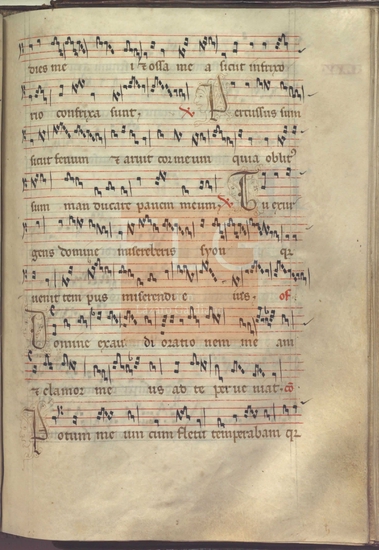 dies me i & ossa me a sicut in frixo
rio confrixa sunt. V Percussus sum
sicut fenum & aruit cor meum quia oblit9
sum man ducare panem meum. V Tu exur
gens domine misereberis syon qr
uenit tem pus miserendi e ius. of
Domine exau di oratio nem me am
& clamor me us ad te per ue niat. co
Potum me um cum fletu temperabam qr